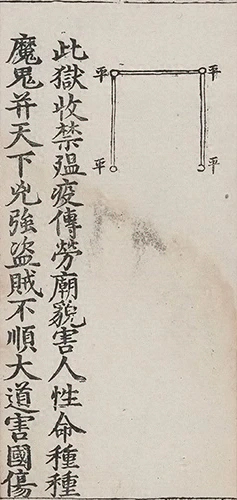 平 平
平 平
此獄收禁瘟疫傳勞廟貌害人性命種種
魔鬼并天下兇強盜賊不順大道害國傷